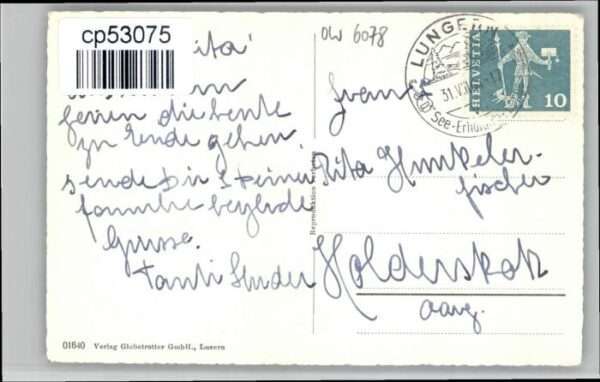 cp53075
ita
ferien die heute
zu Ende gehen,
sende Dir & Deiner
familie herzliche
Grüsse.
Tanti
OW 6078
LUNGERN
31.VII
See-Erholu
HELVETIA
10
Rita Hunkeler-
fischer
Holderstock
Aarg.
Reproduktion verboten
01640 Verlag Globetrotter GmbH., Luzern